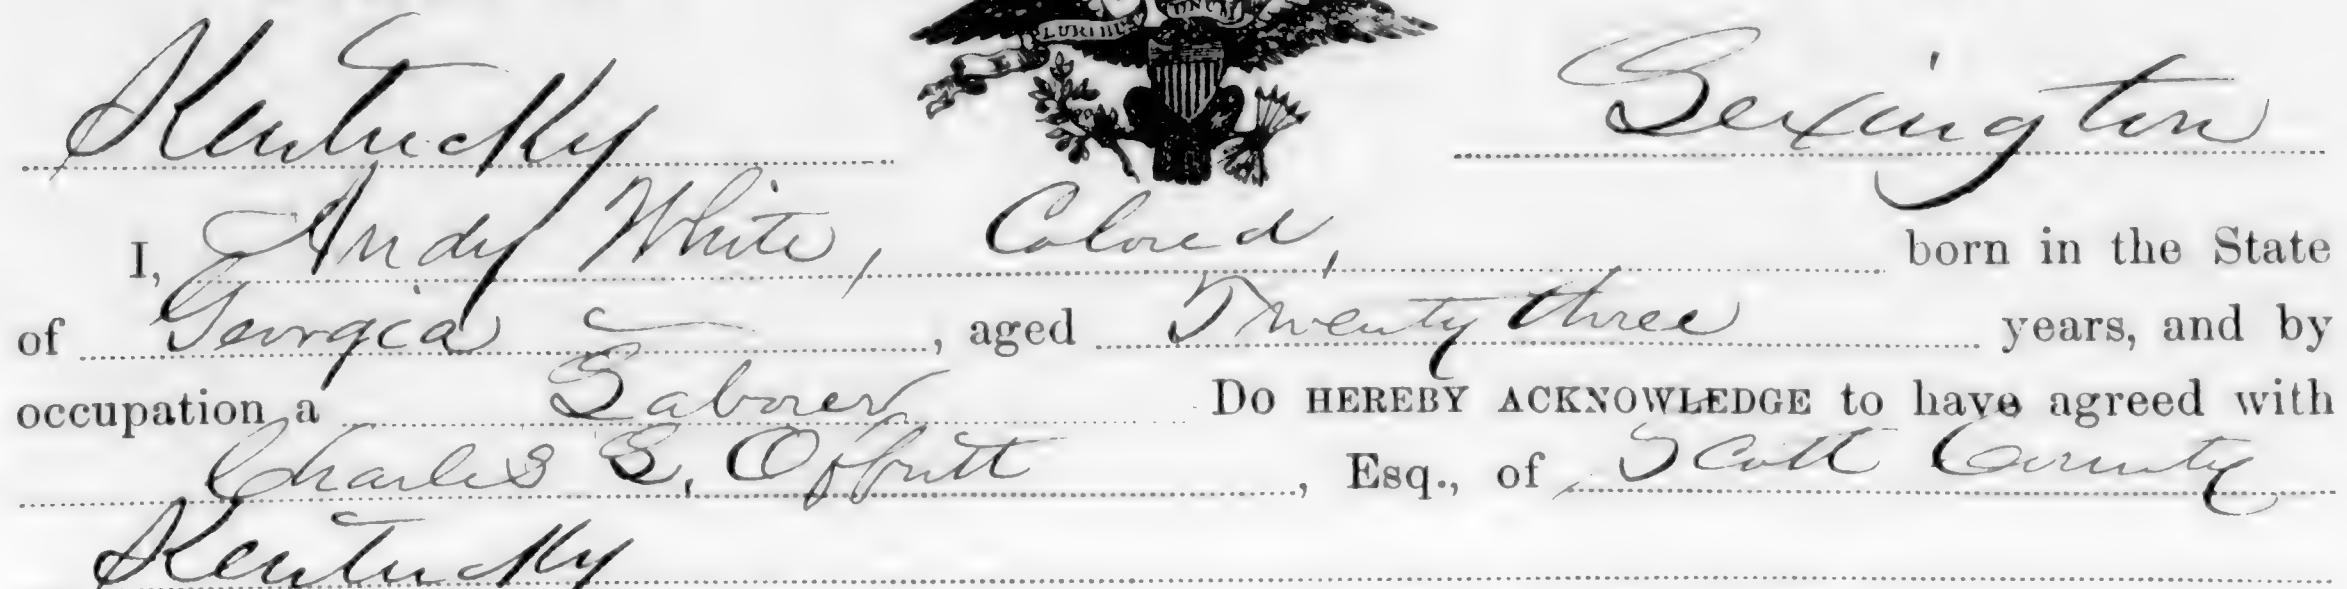 LURIBUS UNUM
Kentucky Lexington
I, Andy White, Colored, born in the State
of Georgia, aged Twenty three years, and by
occupation a Laborer Do HEREBY ACKNOWLEDGE to have agreed with
Charles L. Offutt, Esq., of Scott County
Kentucky